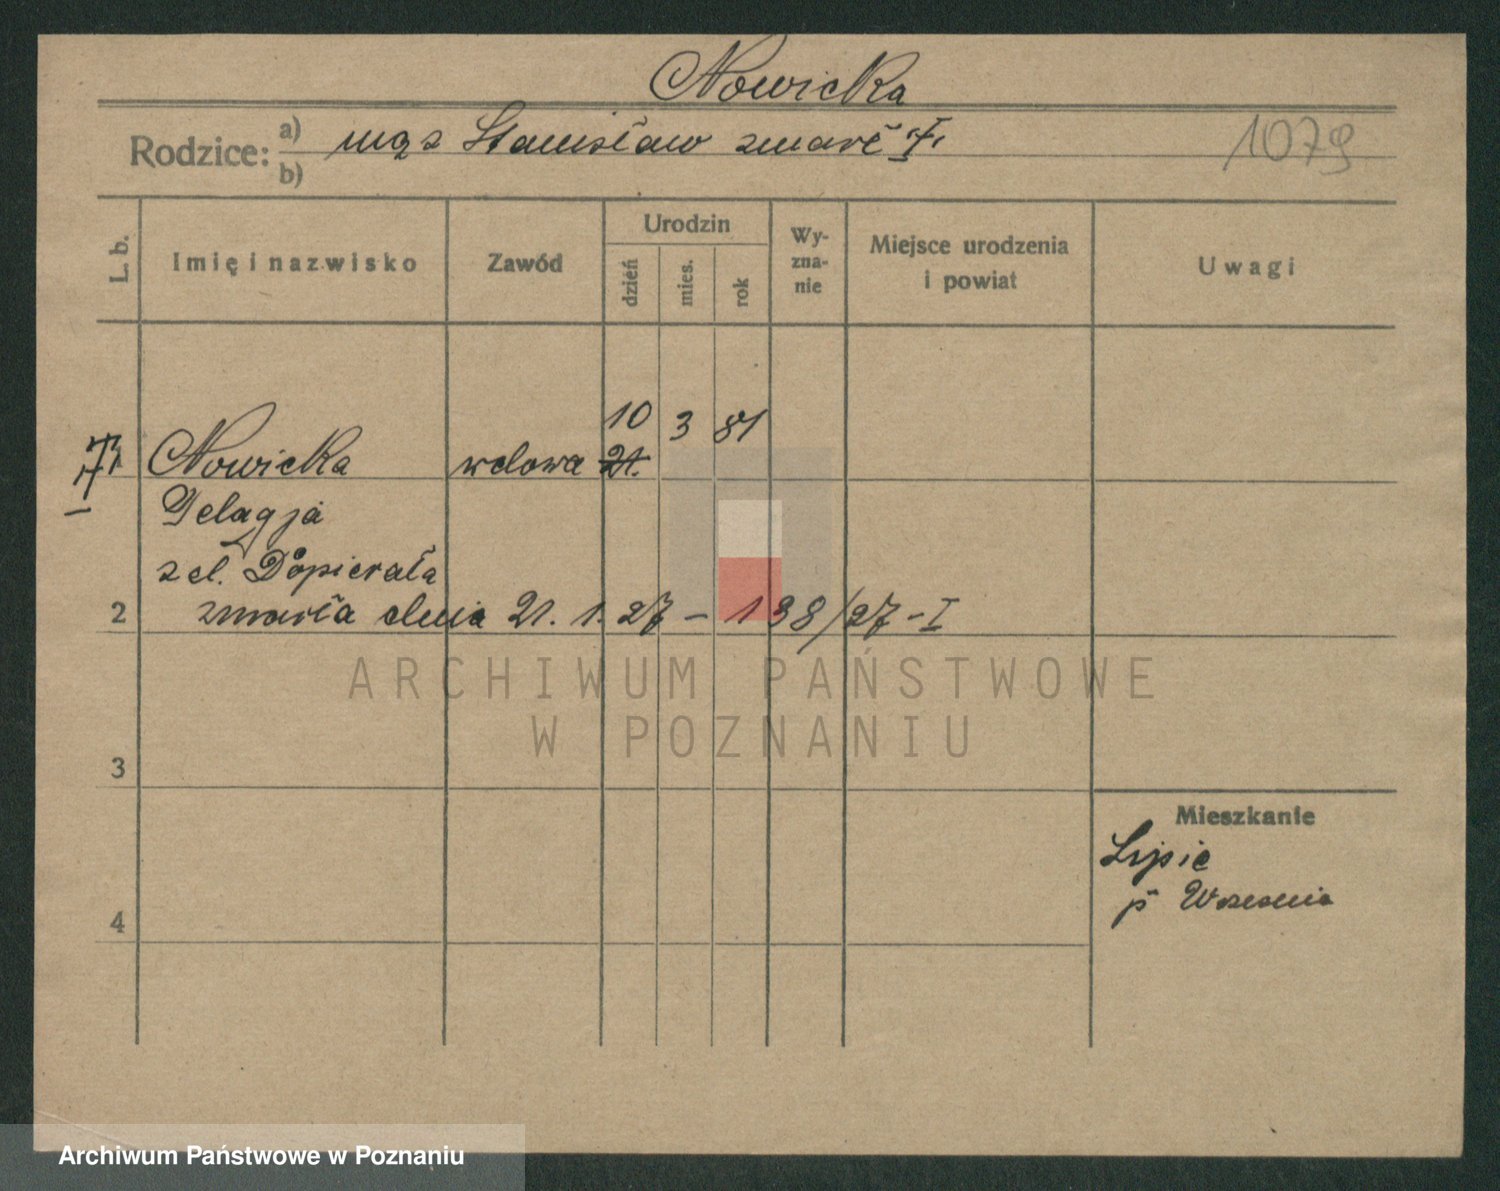 Nowicka
Rodzice: a) mąż Stanisław zmarł
b)
1079
L. b.
Imię i nazwisko
Zawód
Urodzin
dzień
mies.
rok
Wy-
zna-
nie
Miejsce urodzenia
i powiat
Uwagi
1 Nowicka wdowa 10 3 81
21.
Pelagja
z d. Dopierała
2 zmarła dnia 21. 1. 27 - 138/27 - I
ARCHIWUM PAŃSTWOWE
W POZNANIU
3
Mieszkanie
Lipie
p Września
4
Archiwum Państwowe w Poznaniu